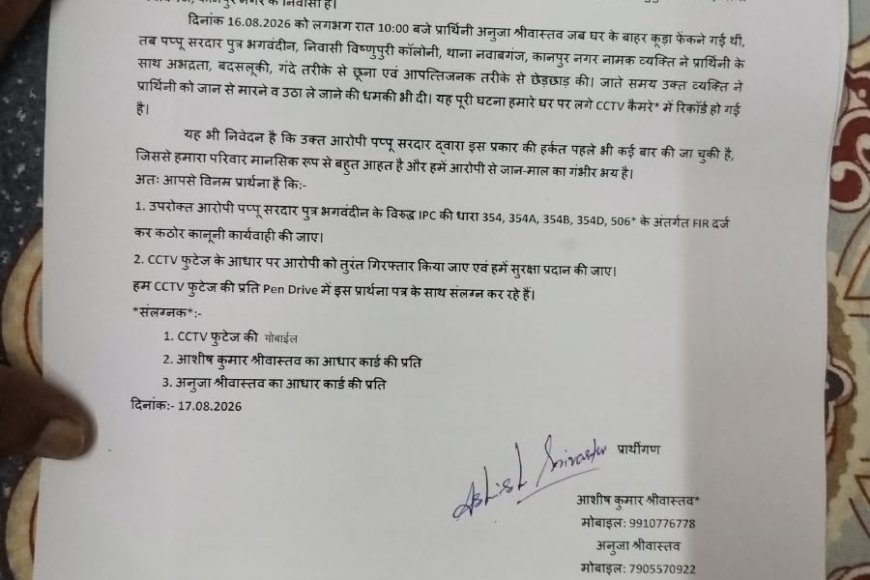 कानपुर नगर के निवासी है।
दिनांक 16.08.2026 को लगभग रात 10:00 बजे प्रार्थिनी अनुजा श्रीवास्तव जब घर के बाहर कूड़ा फेंकने गई थीं,
तब पप्पू सरदार पुत्र भगवंदीन, निवासी विष्णुपुरी कॉलोनी, थाना नवाबगंज, कानपुर नगर नामक व्यक्ति ने प्रार्थिनी के
साथ अभद्रता, बदसलूकी, गंदे तरीके से छूना एवं आपत्तिजनक तरीके से छेड़छाड़ की। जाते समय उक्त व्यक्ति ने
प्रार्थिनी को जान से मारने व उठा ले जाने की धमकी भी दी। यह पूरी घटना हमारे घर पर लगे CCTV कैमरे* में रिकॉर्ड हो गई
है।
यह भी निवेदन है कि उक्त आरोपी पप्पू सरदार द्वारा इस प्रकार की हर्कत पहले भी कई बार की जा चुकी है,
जिससे हमारा परिवार मानसिक रूप से बहुत आहत है और हमें आरोपी से जान-माल का गंभीर भय है।
अतः आपसे विनम्र प्रार्थना है कि:-
1. उपरोक्त आरोपी पप्पू सरदार पुत्र भगवंदीन के विरुद्ध IPC की धारा 354, 354A, 354B, 354D, 506* के अंतर्गत FIR दर्ज
कर कठोर कानूनी कार्यवाही की जाए।
2. CCTV फुटेज के आधार पर आरोपी को तुरंत गिरफ्तार किया जाए एवं हमें सुरक्षा प्रदान की जाए।
हम CCTV फुटेज की प्रति Pen Drive में इस प्रार्थना पत्र के साथ संलग्न कर रहे हैं।
*संलग्नक*:-
1. CCTV फुटेज की मोबाईल
2. आशीष कुमार श्रीवास्तव का आधार कार्ड की प्रति
3. अनुजा श्रीवास्तव का आधार कार्ड की प्रति
दिनांक:- 17.08.2026
Ashish Srivastav प्रार्थीगण
आशीष कुमार श्रीवास्तव*
मोबाइल: 9910776778
अनुजा श्रीवास्तव
मोबाइल: 7905570922